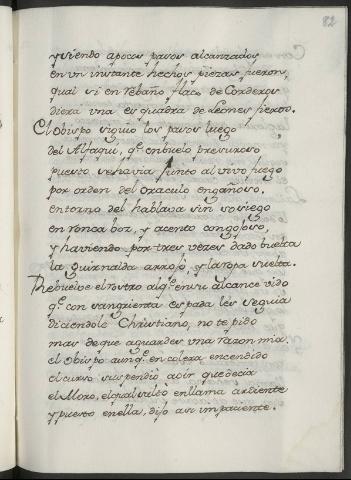 82
y siendo apocos pasos alcanzados
en un instante hechos piezas fueron,
qual si en rebaño flaco de Corderos
diera una esquadra de Leones fieros.
El obispo siguio los pasos luego
del Alfaqui, qe. en buelo presuroso
puesto se havia junto al vivo fuego
por orden del oraculo engañoso,
entorno del hablava sin sosiego
en ronca boz, y acento congojoso,
y haviendo por tres vezes dado buelta
la guirnalda arrojo, y la ropa suelta.
Rebuelve el rostro al qe. en su alcance vido
qe. con sangrienta espada les seguia
diciendole Christiano, no te pido
mas de que aguardes una razon mia.
el obispo aunqe. en colera encendido
el curso suspendio a oir que decia
el Moro, el qual saltò en llama ardiente
y puesto en ella, dijo asi impaciente.